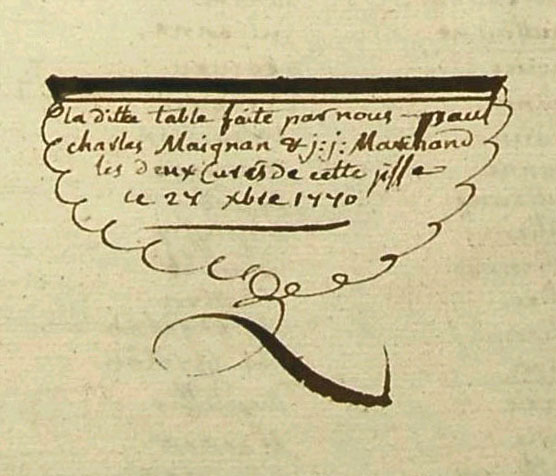 la ditte table faite par nous paul
charles Maignan & j: j: Marchand
les deux Curés de cette
le 27 xbre 1770